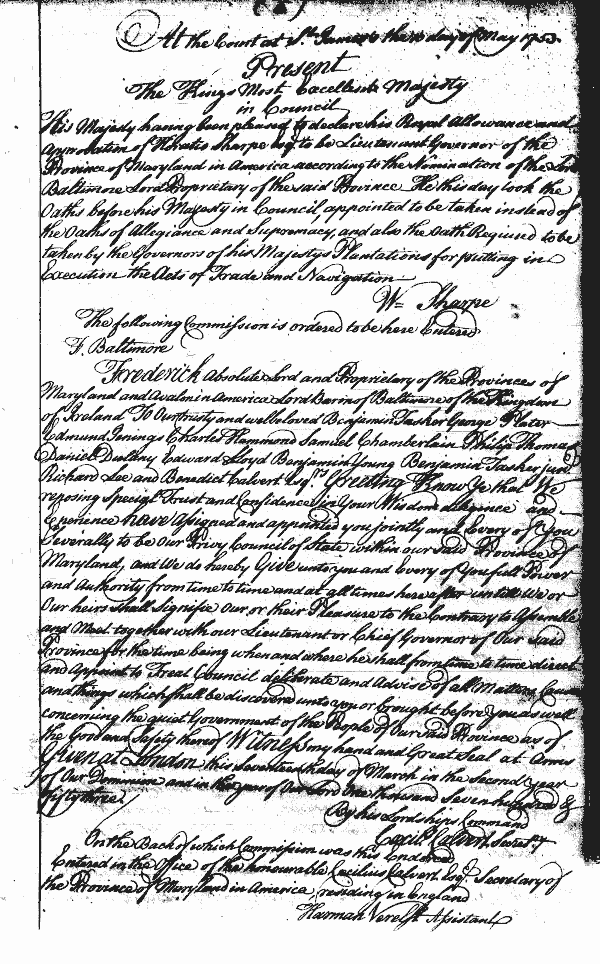 At the Court at St. James's the day of May 1753.
Present
The Kings Most Excellent Majesty
in Council
His Majesty having been pleased to declare his Royal Allowance and
Approbation of Horatio Sharpe Esq. to be Lieutenant Governor of the
Province of Maryland in America according to the Nomination of the Lord
Baltimore Lord Proprietary of the said Province He this day took the
Oaths before his Majesty in Council appointed to be taken instead of
the Oaths of Allegiance and Supremacy, and also the Oath Required to be
taken by the Governors of his Majestys Plantations for putting in
Execution the Acts of Trade and Navigation
Wm Sharpe
The following Commission is ordered to be here Entered
F. Baltimore
Frederick Absolute Lord and Proprietary of the Provinces of
Maryland and Avalon in America Lord Baron of Baltimore of the Kingdom
of Ireland To Our trusty and well beloved Benjamin Tasker George Plater
Edmund Jenings Charles Hammond Samuel Chamberlain Philip Thomas
Daniel Dulany Edward Lloyd Benjamin Young Benjamin Tasker junr.
Richard Lee and Benedict Calvert Esqrs. Greeting Know Ye that We
reposing special Trust and Confidence in Your Wisdom diligence and
Experience have Assigned and appointed you jointly and Every of You
Severally to be Our Privy Council of State within our said Province of
Maryland, and We do hereby Give unto you and Every of You full Power
and Authority from time to time and at all times hereafter untill We or
Our heirs shall Signifie Our or their Pleasure to the Contrary to Assemble
and Meet together with our Lieutenant or Chief Governor of Our said
Province for the time being when and where he shall from time to time direct
and Appoint to Treat Council deliberate and Advise of all Matters Causes
and things which shall be discovered unto you or brought before You as well
concerning the quiet Government of the People of Our said Province as of
the Good and Safety thereof Witness my hand and Great Seal at Arms
Given at London this Seventeenth day of March in the Second Year
of Our Dominion and in the year of Our Lord One thousand Seven hundred &
fifty three
By his Lordships Command
Cecil. Calvert Secrety
On the Back of which Commission was this Endorsed
Entered in the Office of the honourable Cecilius Calvert Esqr. Secretary of
the Province of Maryland in America, residing in England
Harman Verelst Assistant